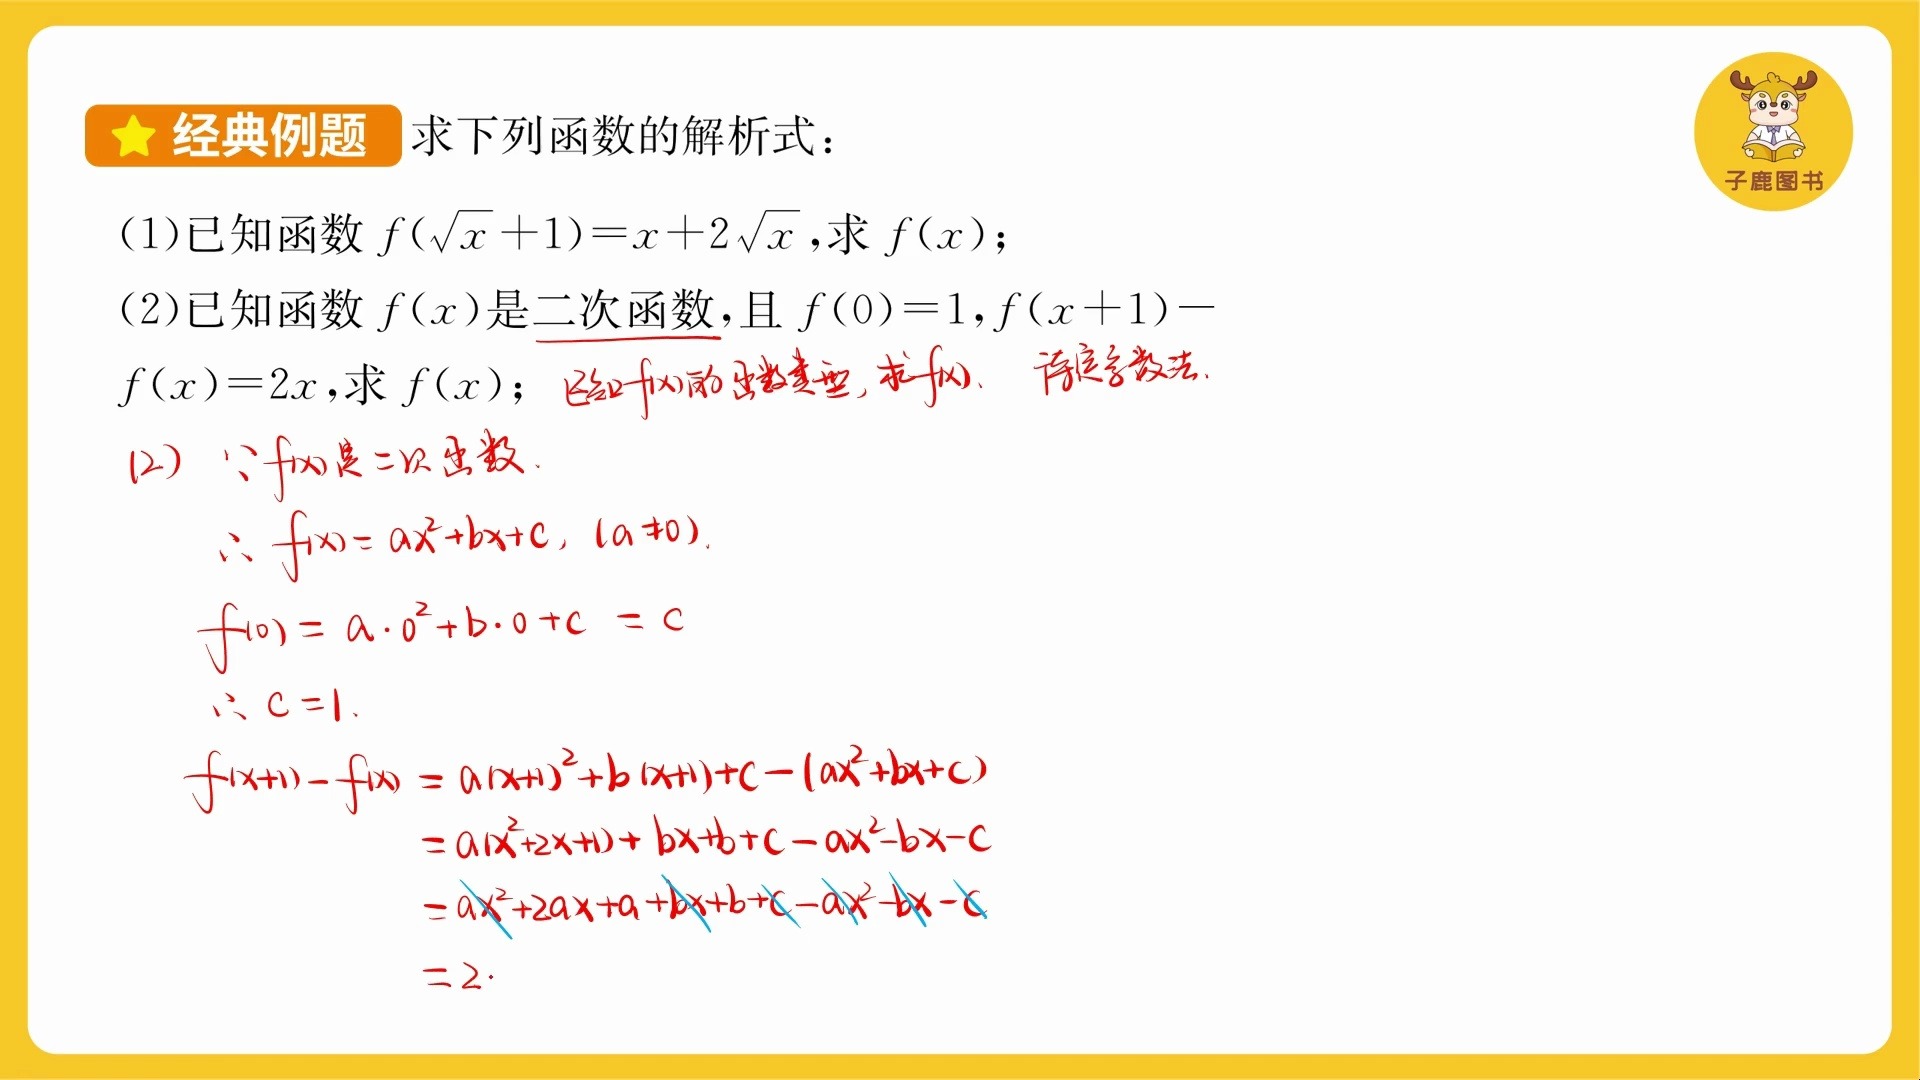 经典例题 求下列函数的解析式：
子鹿图书
(1)已知函数 f(√x+1)=x+2√x,求 f(x);
(2)已知函数 f(x)是二次函数,且 f(0)=1,f(x+1)-
f(x)=2x,求 f(x); 已知f(x)的函数类型,求f(x). 待定系数法.
(2) ∵ f(x)是二次函数.
∴ f(x)= ax²+bx+c, (a≠0).
f(0) = a·0²+b·0+c = c
∴ c=1.
f(x+1)-f(x) = a(x+1)²+b(x+1)+c-(ax²+bx+c)
=a(x²+2x+1)+bx+b+c-ax²-bx-c
=ax²+2ax+a+bx+b+c-ax²-bx-c
=2.